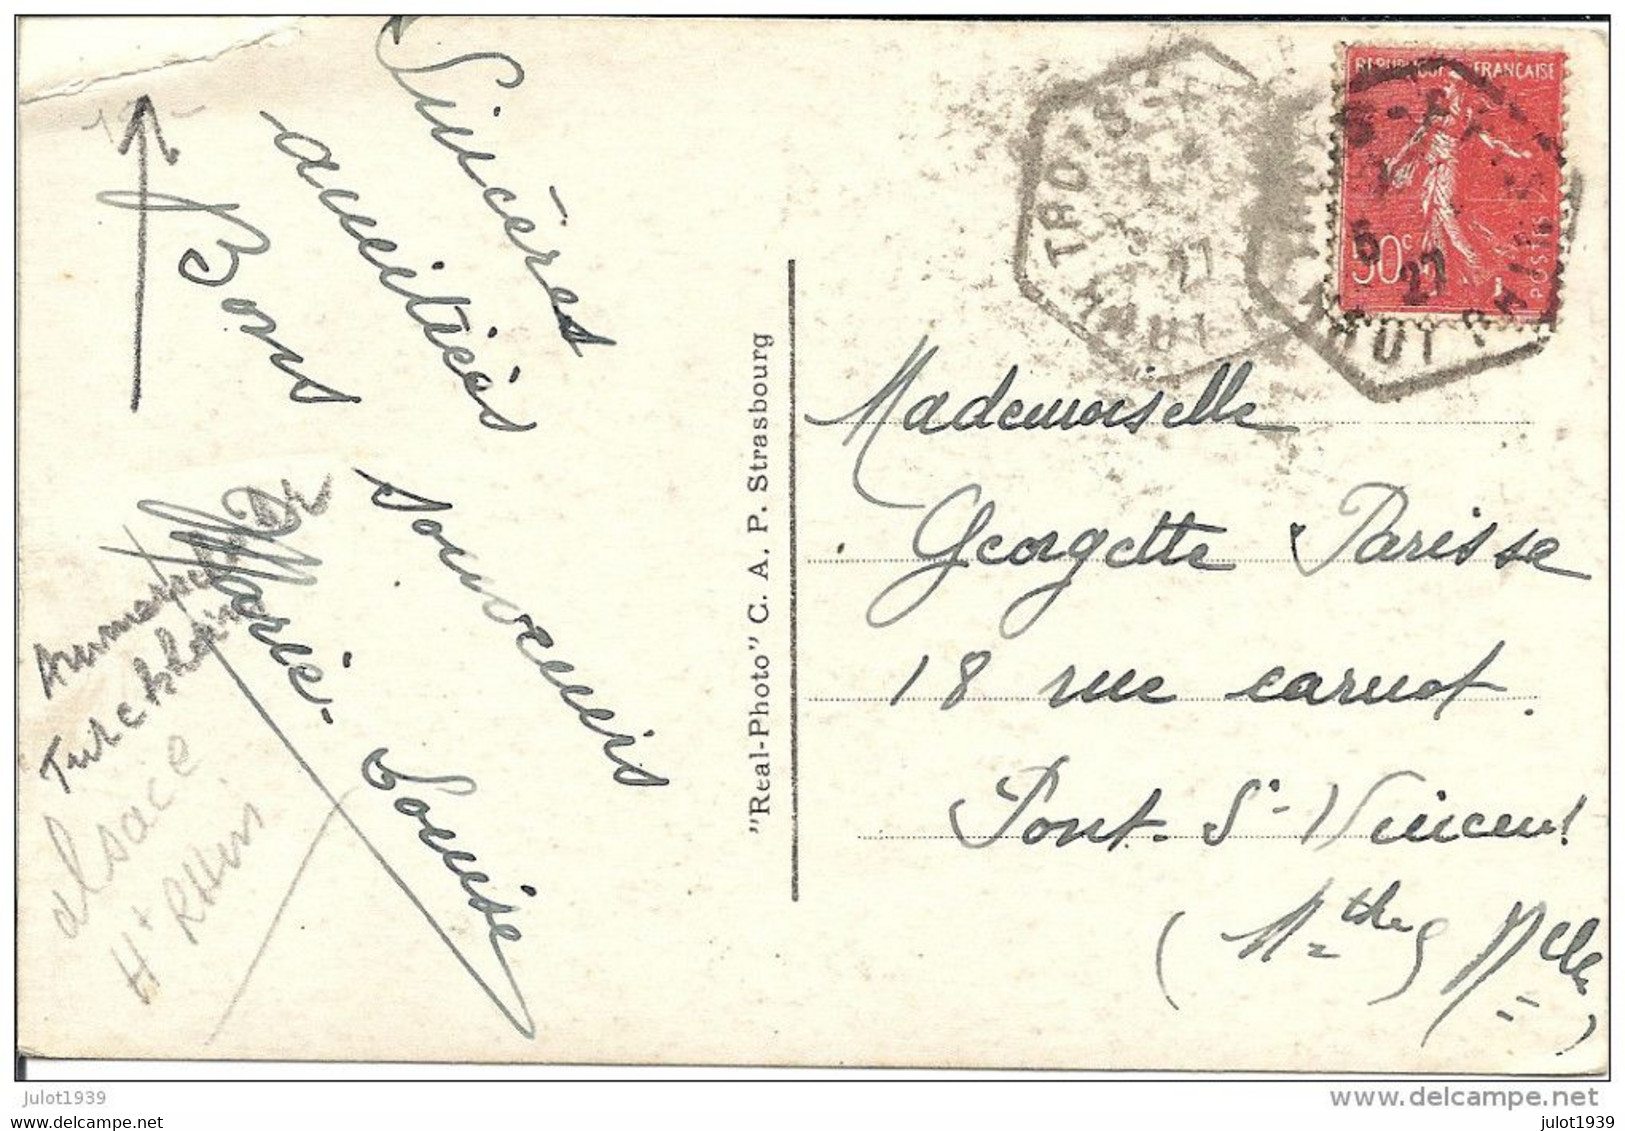 Sincères
amitiés
Bons
souvenirs
Marie-Louise
Dr
Turckheim
alsace
Ht RHin
"Real-Photo" C. A. P. Strasbourg
REPUBLIQUE FRANÇAISE
50c
POSTES
TROIS
HAUT
27
HAUT RHIN
5
27
Mademoiselle
Georgette Parisse
18 rue carnot.
Pont-St-Vincent
(Mthe & Mlle)
julot1939
www.delcampe.net
julot1939